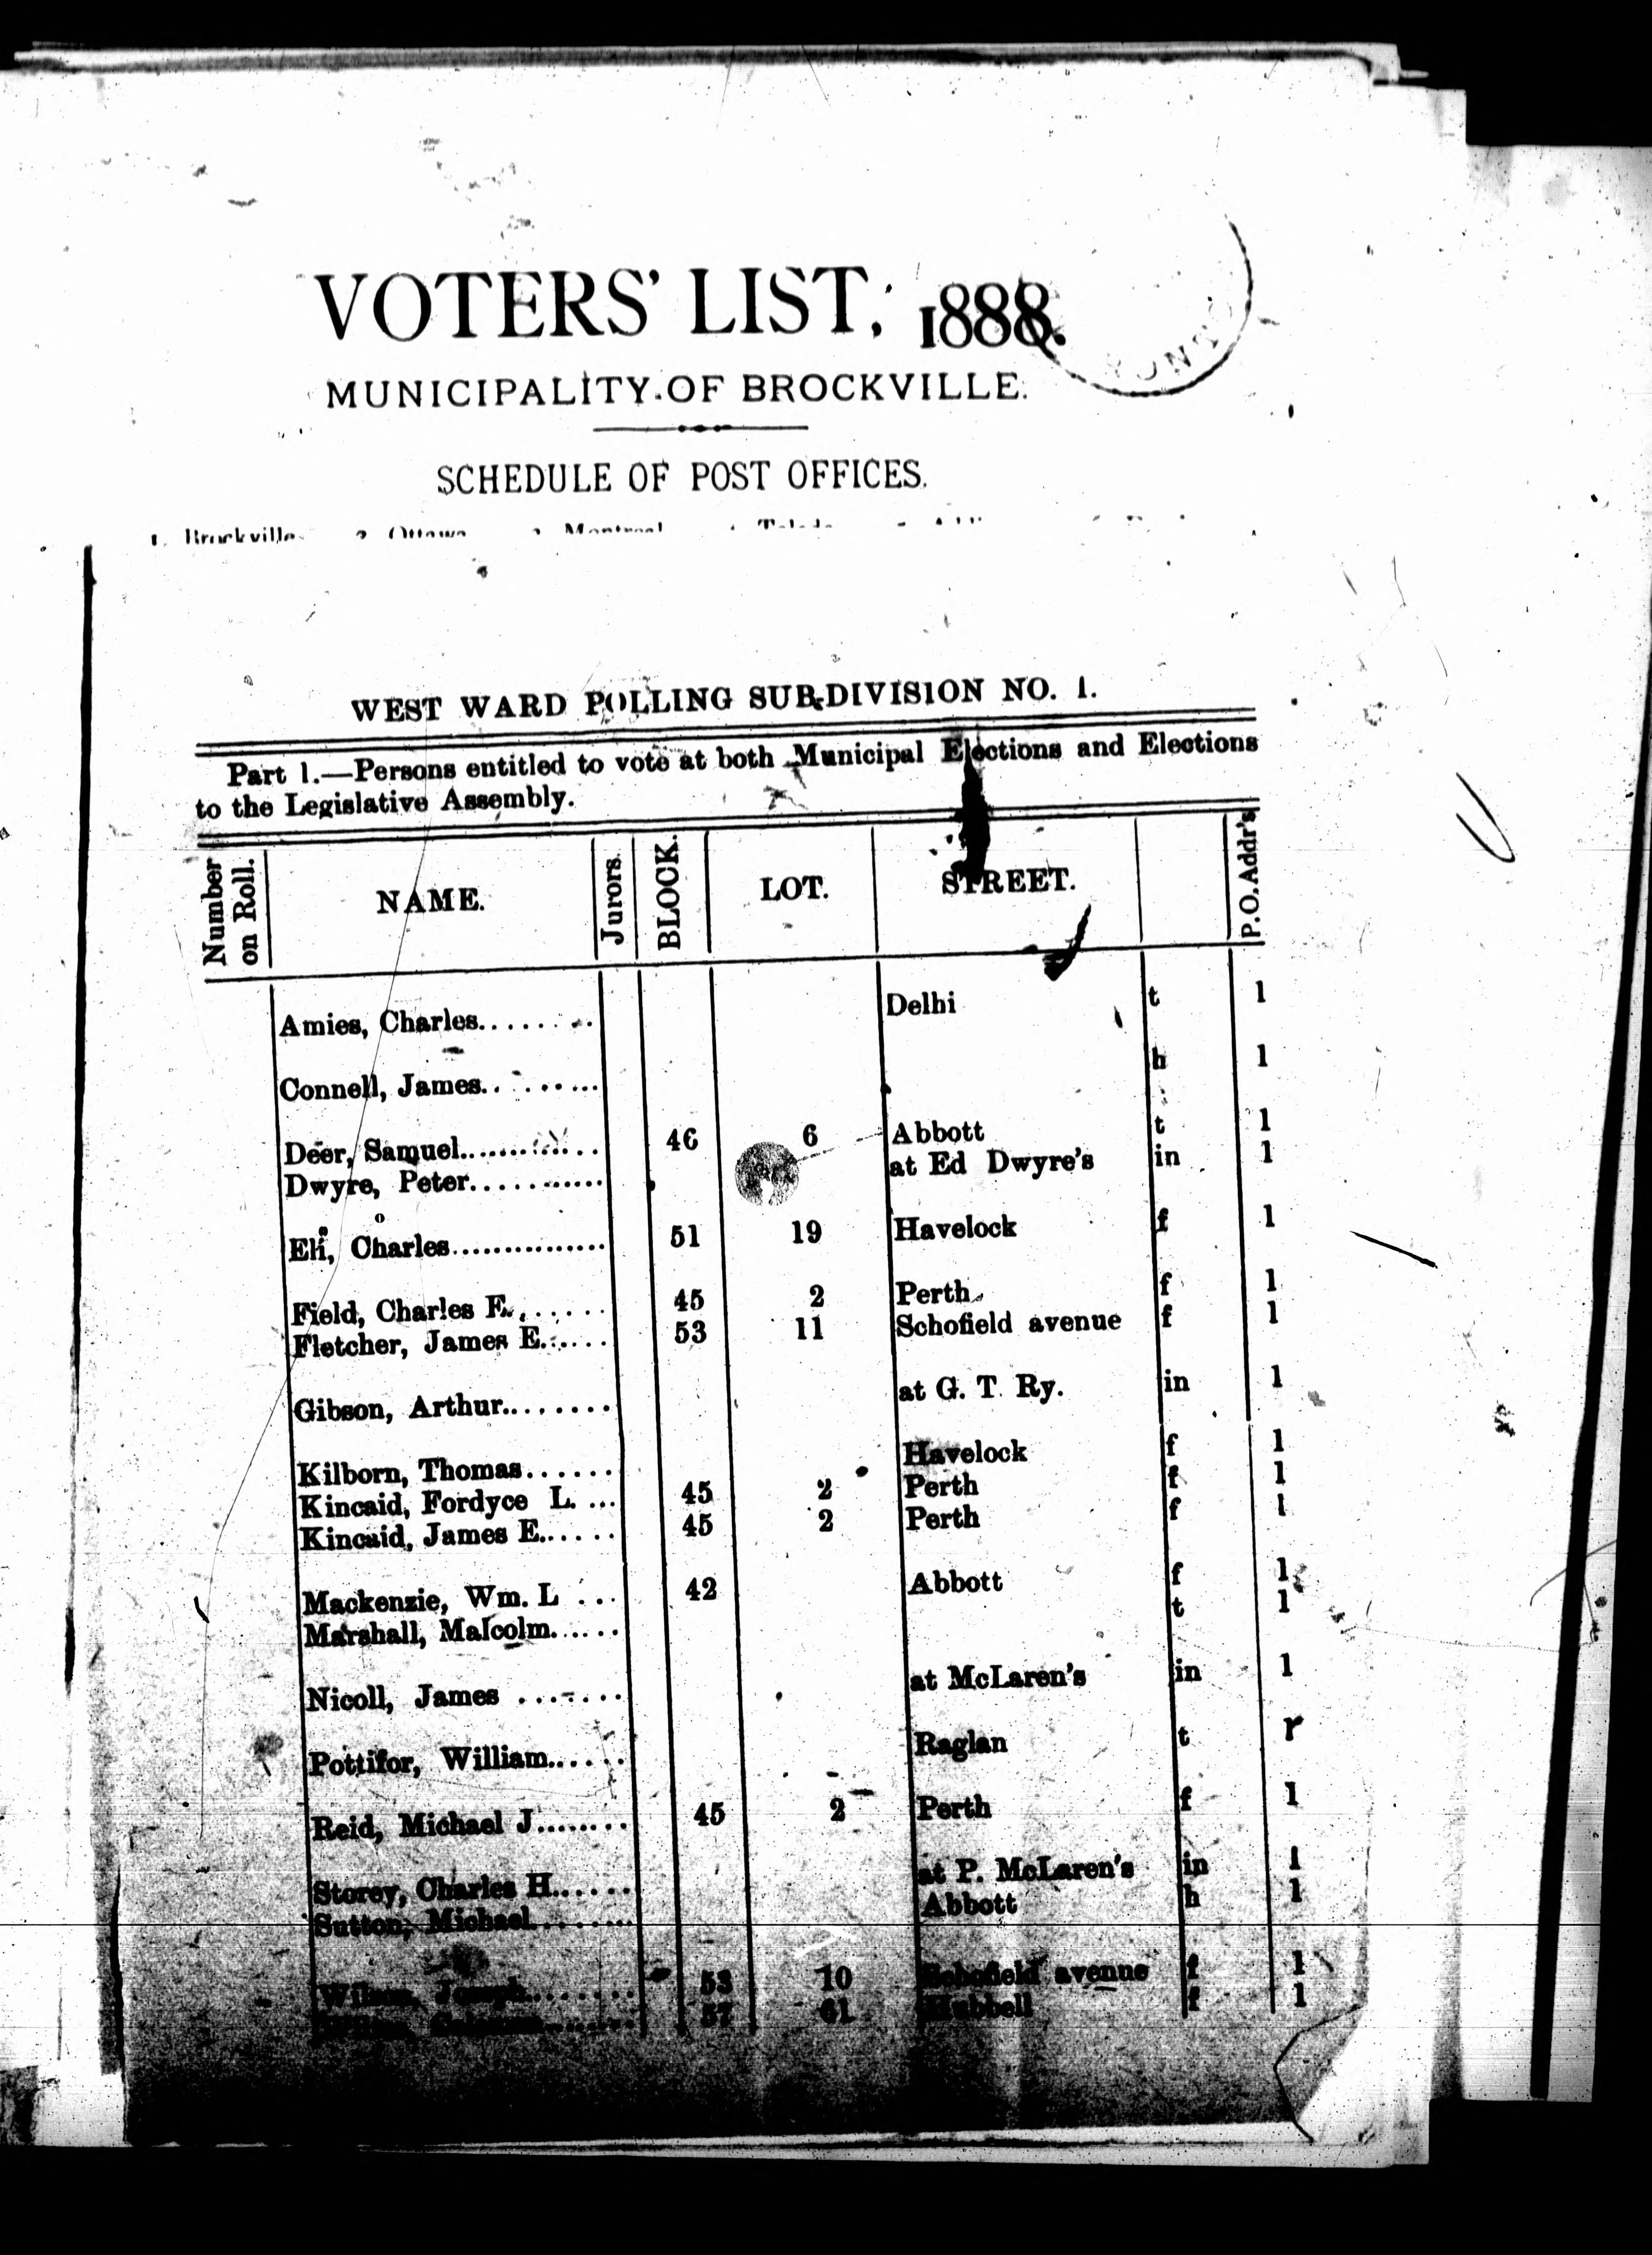 VOTERS' LIST, 1888.
MUNICIPALITY OF BROCKVILLE.
SCHEDULE OF POST OFFICES.
1. Brockville 2 Ottawa 3 Montreal
WEST WARD POLLING SUB-DIVISION NO. 1.
Part 1.—Persons entitled to vote at both Municipal Elections and Elections
to the Legislative Assembly.
Number on Roll. NAME. Jurors. BLOCK. LOT. STREET. P.O. Addr's
Amies, Charles........ Delhi t 1
Connell, James......... h 1
Deer, Samuel............. 46 6 Abbott t 1
Dwyre, Peter............ at Ed Dwyre's in 1
Eli, Charles............... 51 19 Havelock f 1
Field, Charles E....... 45 2 Perth f 1
Fletcher, James E...... 53 11 Schofield avenue f 1
Gibson, Arthur......... at G. T. Ry. in 1
Kilborn, Thomas...... Havelock f 1
Kincaid, Fordyce L. ... 45 2 Perth f 1
Kincaid, James E...... 45 2 Perth f 1
Mackenzie, Wm. L ... 42 Abbott f 1
Marshall, Malcolm...... t 1
Nicoll, James ....... at McLaren's in 1
Pottifor, William...... Raglan t r
Reid, Michael J........ 45 2 Perth f 1
Storey, Charles H...... at P. McLaren's in 1
Sutton, Michael........ Abbott h 1
Wilson, Joseph........ 53 10 Schofield avenue f 1
57 61 Hubbell f 1